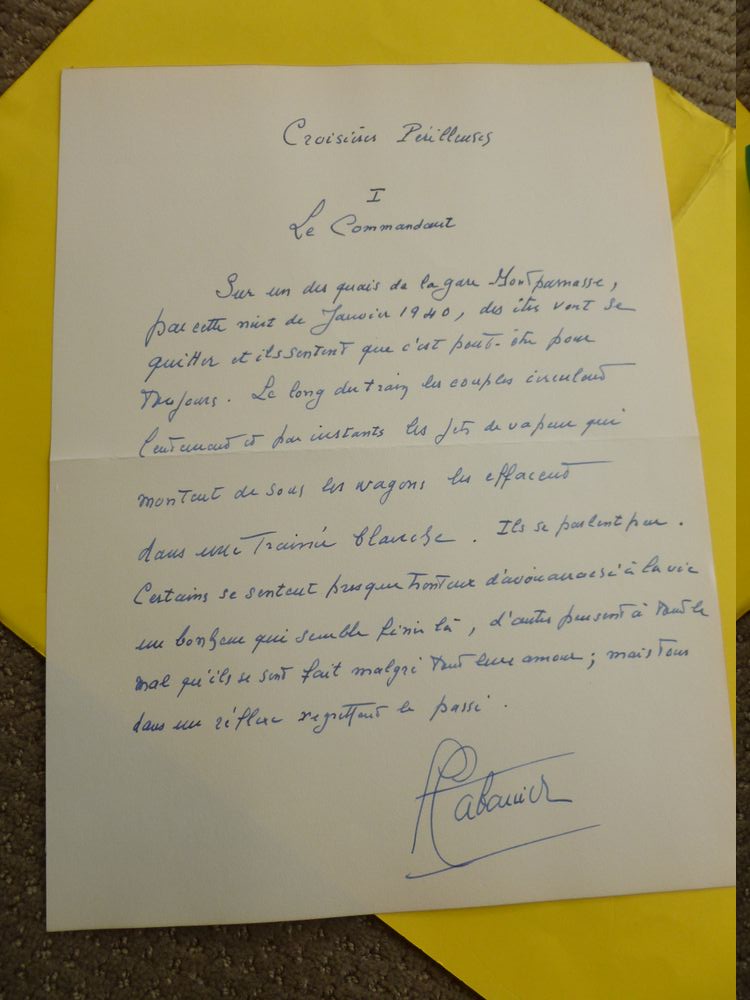 Croisières Périlleuses
I
Le Commandant
Sur un des quais de la gare Montparnasse,
par cette nuit de Janvier 1940, des êtres vont se
quitter et ils sentent que c'est peut-être pour
toujours. Le long du train les couples circulent
lentement et par instants les jets de vapeur qui
montent de sous les wagons les effacent
dans une trainée blanche. Ils se parlent peu.
Certains se sentent presque honteux d'avoir arraché à la vie
un bonheur qui semble finir là, d'autres pensent à tout le
mal qu'ils se sont fait malgré tout leur amour; mais tous
dans un réflexe regrettent le passé.
Cabanier